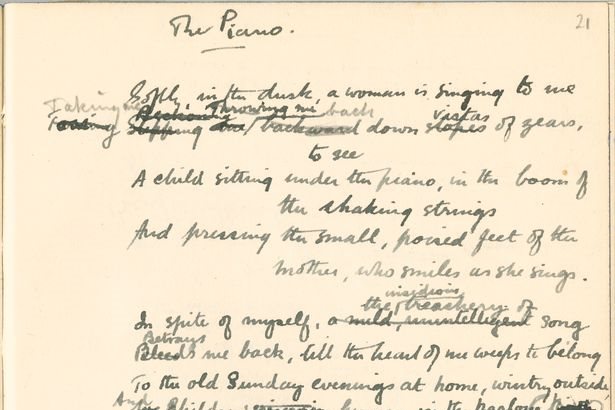 The Piano.
21
Softly, in the dusk, a woman is singing to me
Taking me back vistas
down slopes of years,
to see
A child sitting under the piano, in the boom of
the shaking strings
And pressing the small, poised feet of the
mother, who smiles as she sings.
insidious
the treachery of
In spite of myself, a mild, unintelligent song
Betrays
me back, till the heart of me weeps to belong
To the old Sunday evenings at home, wintry outside
And
in the parlour